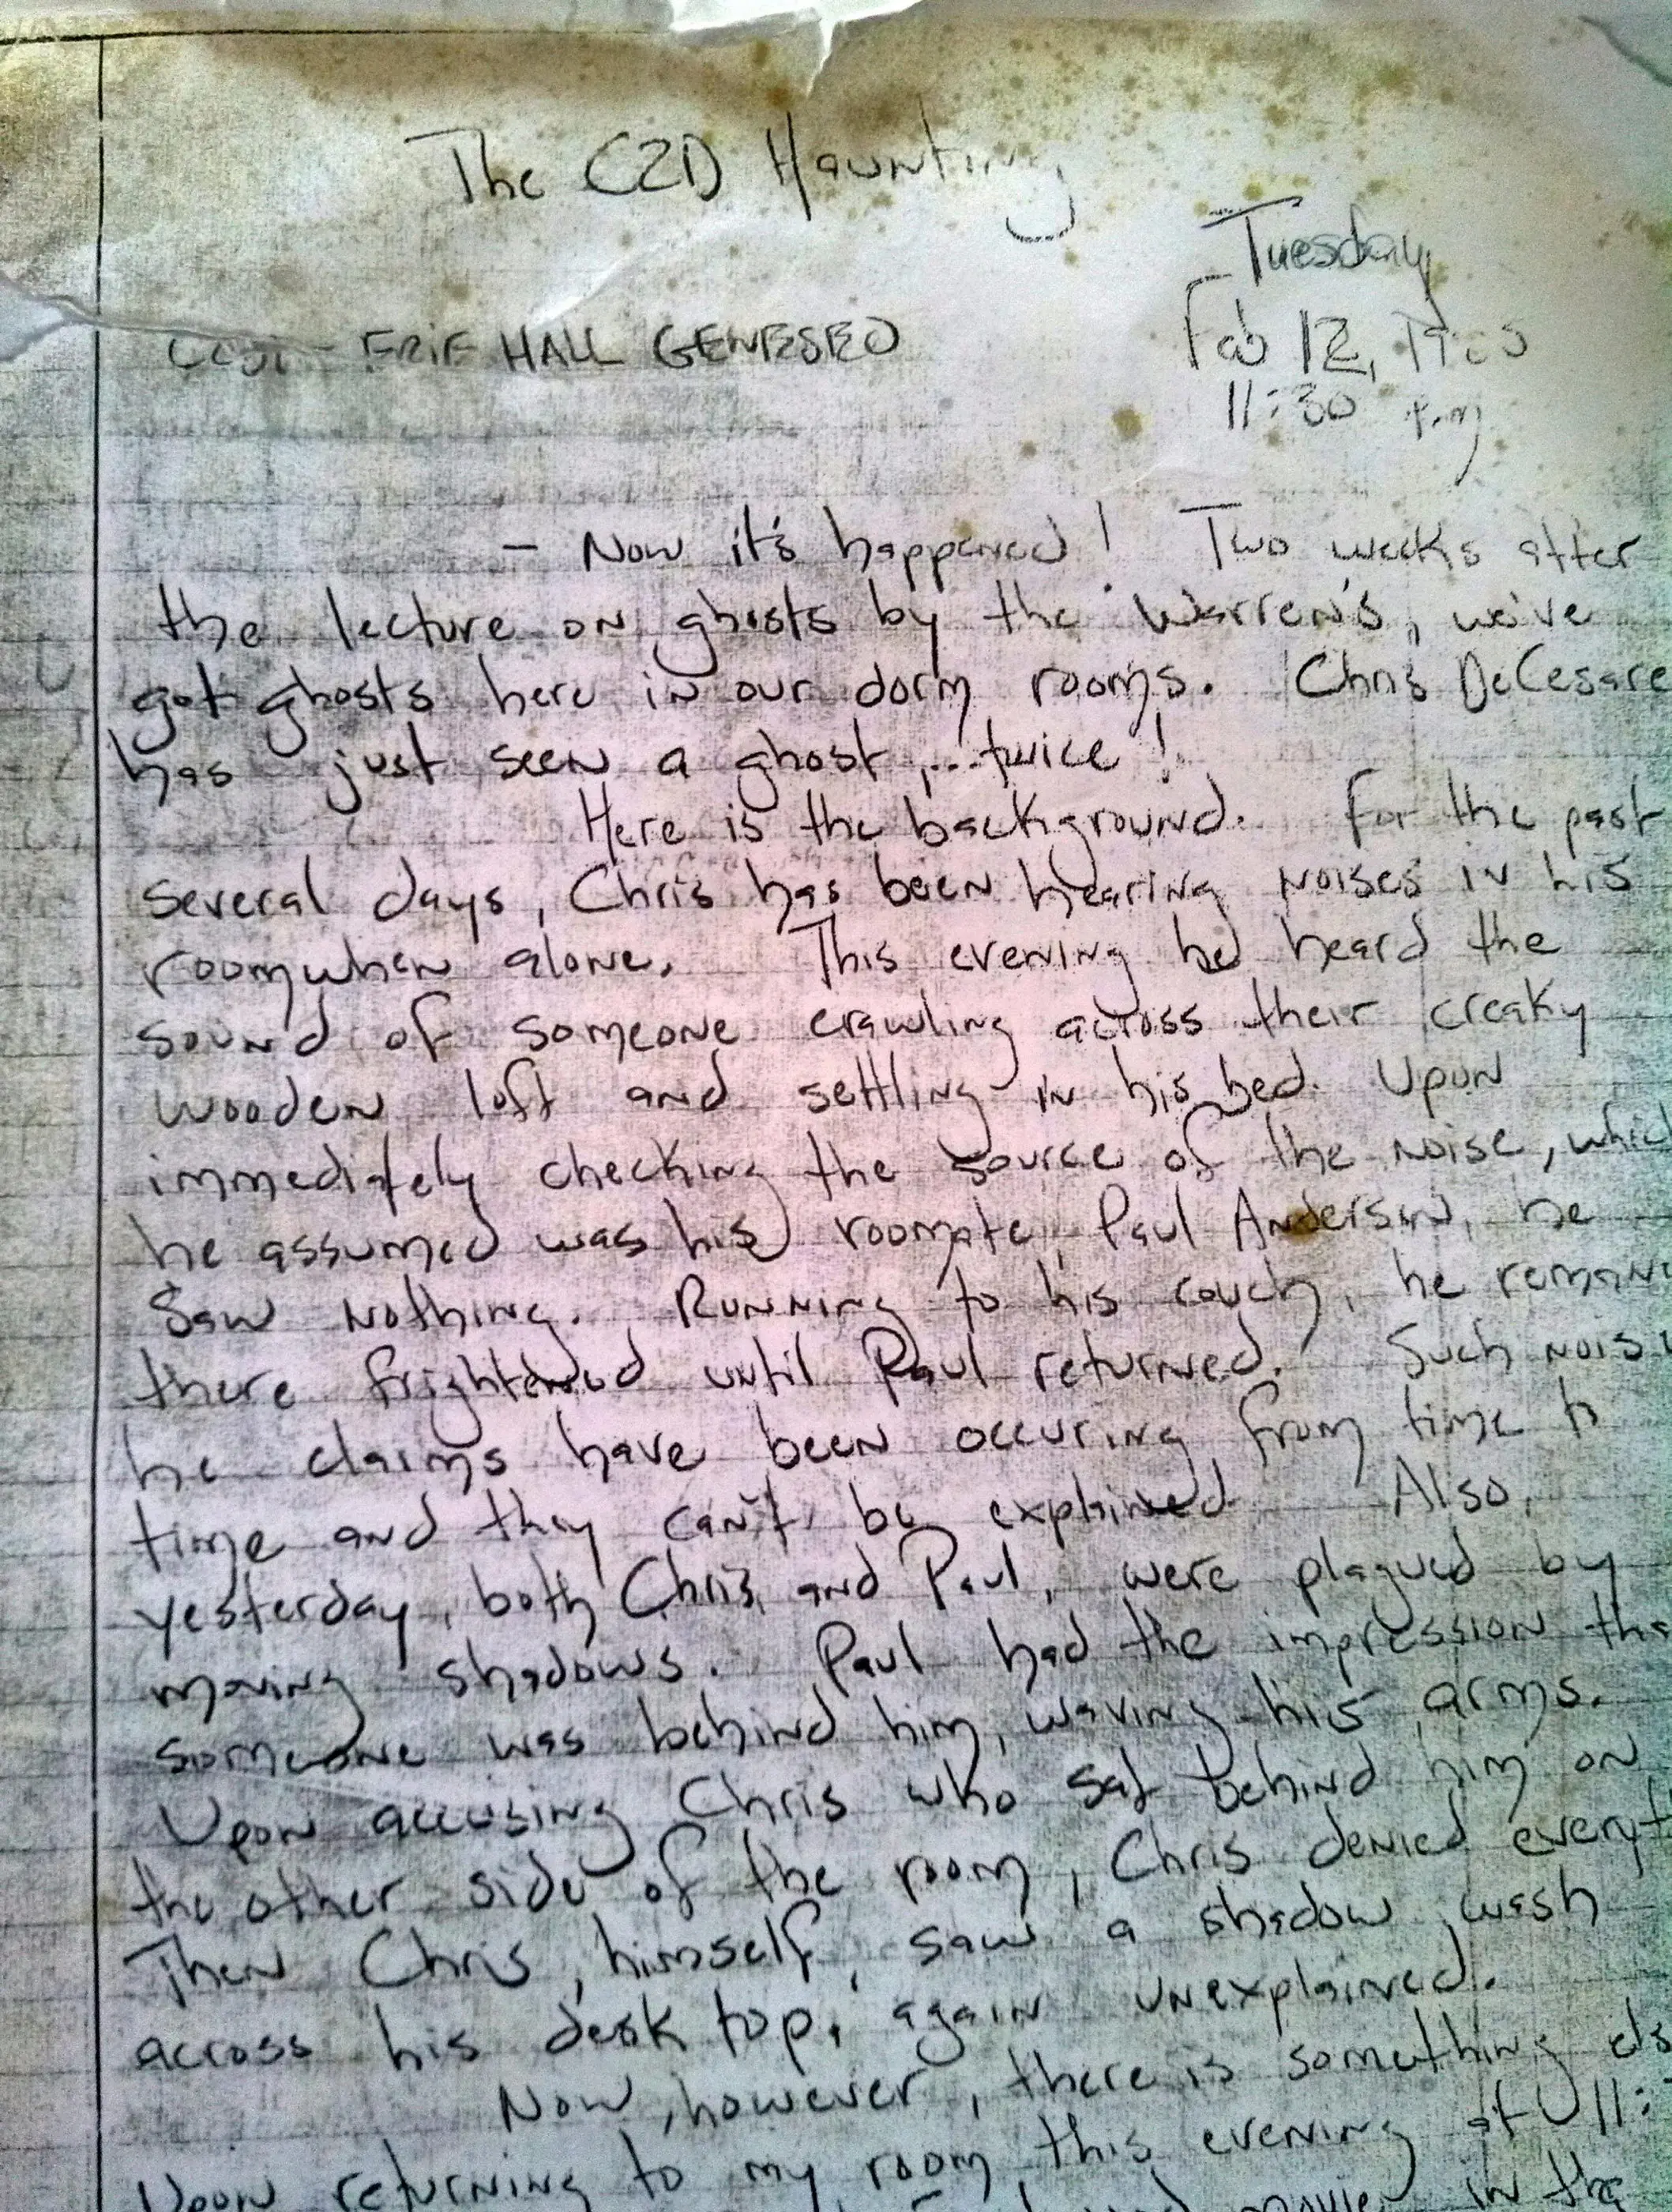 The C2D Haunting
Tuesday
ERIE HALL GENESEO
Feb 12,
11:30 p.m
- Now it's happened! Two weeks after
the lecture on ghosts by the Warren's, we've
got ghosts here in our dorm rooms. Chris DeCesare
has just seen a ghost,...twice!
Here is the background. For the past
several days, Chris has been hearing noises in his
room when alone. This evening he heard the
sound of someone crawling across their creaky
wooden loft and settling in his bed. Upon
immediately checking the source of the noise, which
he assumed was his roomate, Paul Anderson, he
saw nothing. Running to his couch, he
there frightened until Paul returned. Such
he claims have been occuring from time to
time and they can't be explained Also,
yesterday, both Chris and Paul, were plagued by
moving shadows. Paul had the impression
someone was behind him, waving his arms.
Upon accusing Chris who sat behind him on
the other side of the room, Chris denied
Then Chris, himself, saw a shadow wash
across his desk top, again unexplained.
Now, however, there is something
Upon returning to my room this evening at 11:
in the